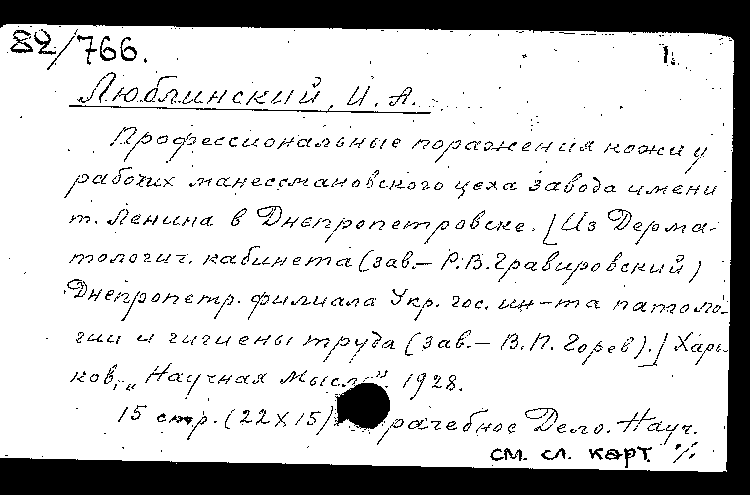 82/766.
1.
Люблинский, И. А.
Профессиональные поражения кожи у
рабочих манессмановского цеха завода имени
т. Ленина в Днепропетровске. [Из Дерма-
тологич. кабинета (зав.— Р.В. Гравировский)
Днепропетр. филиала Укр. гос. ин-та патоло-
гии и гигиены труда (зав.— В.П. Горев).] Харь-
ков, „Научная Мысль" 1928.
15 стр. (22X15) рачебное Дело. Науч.
см. сл. карт. %